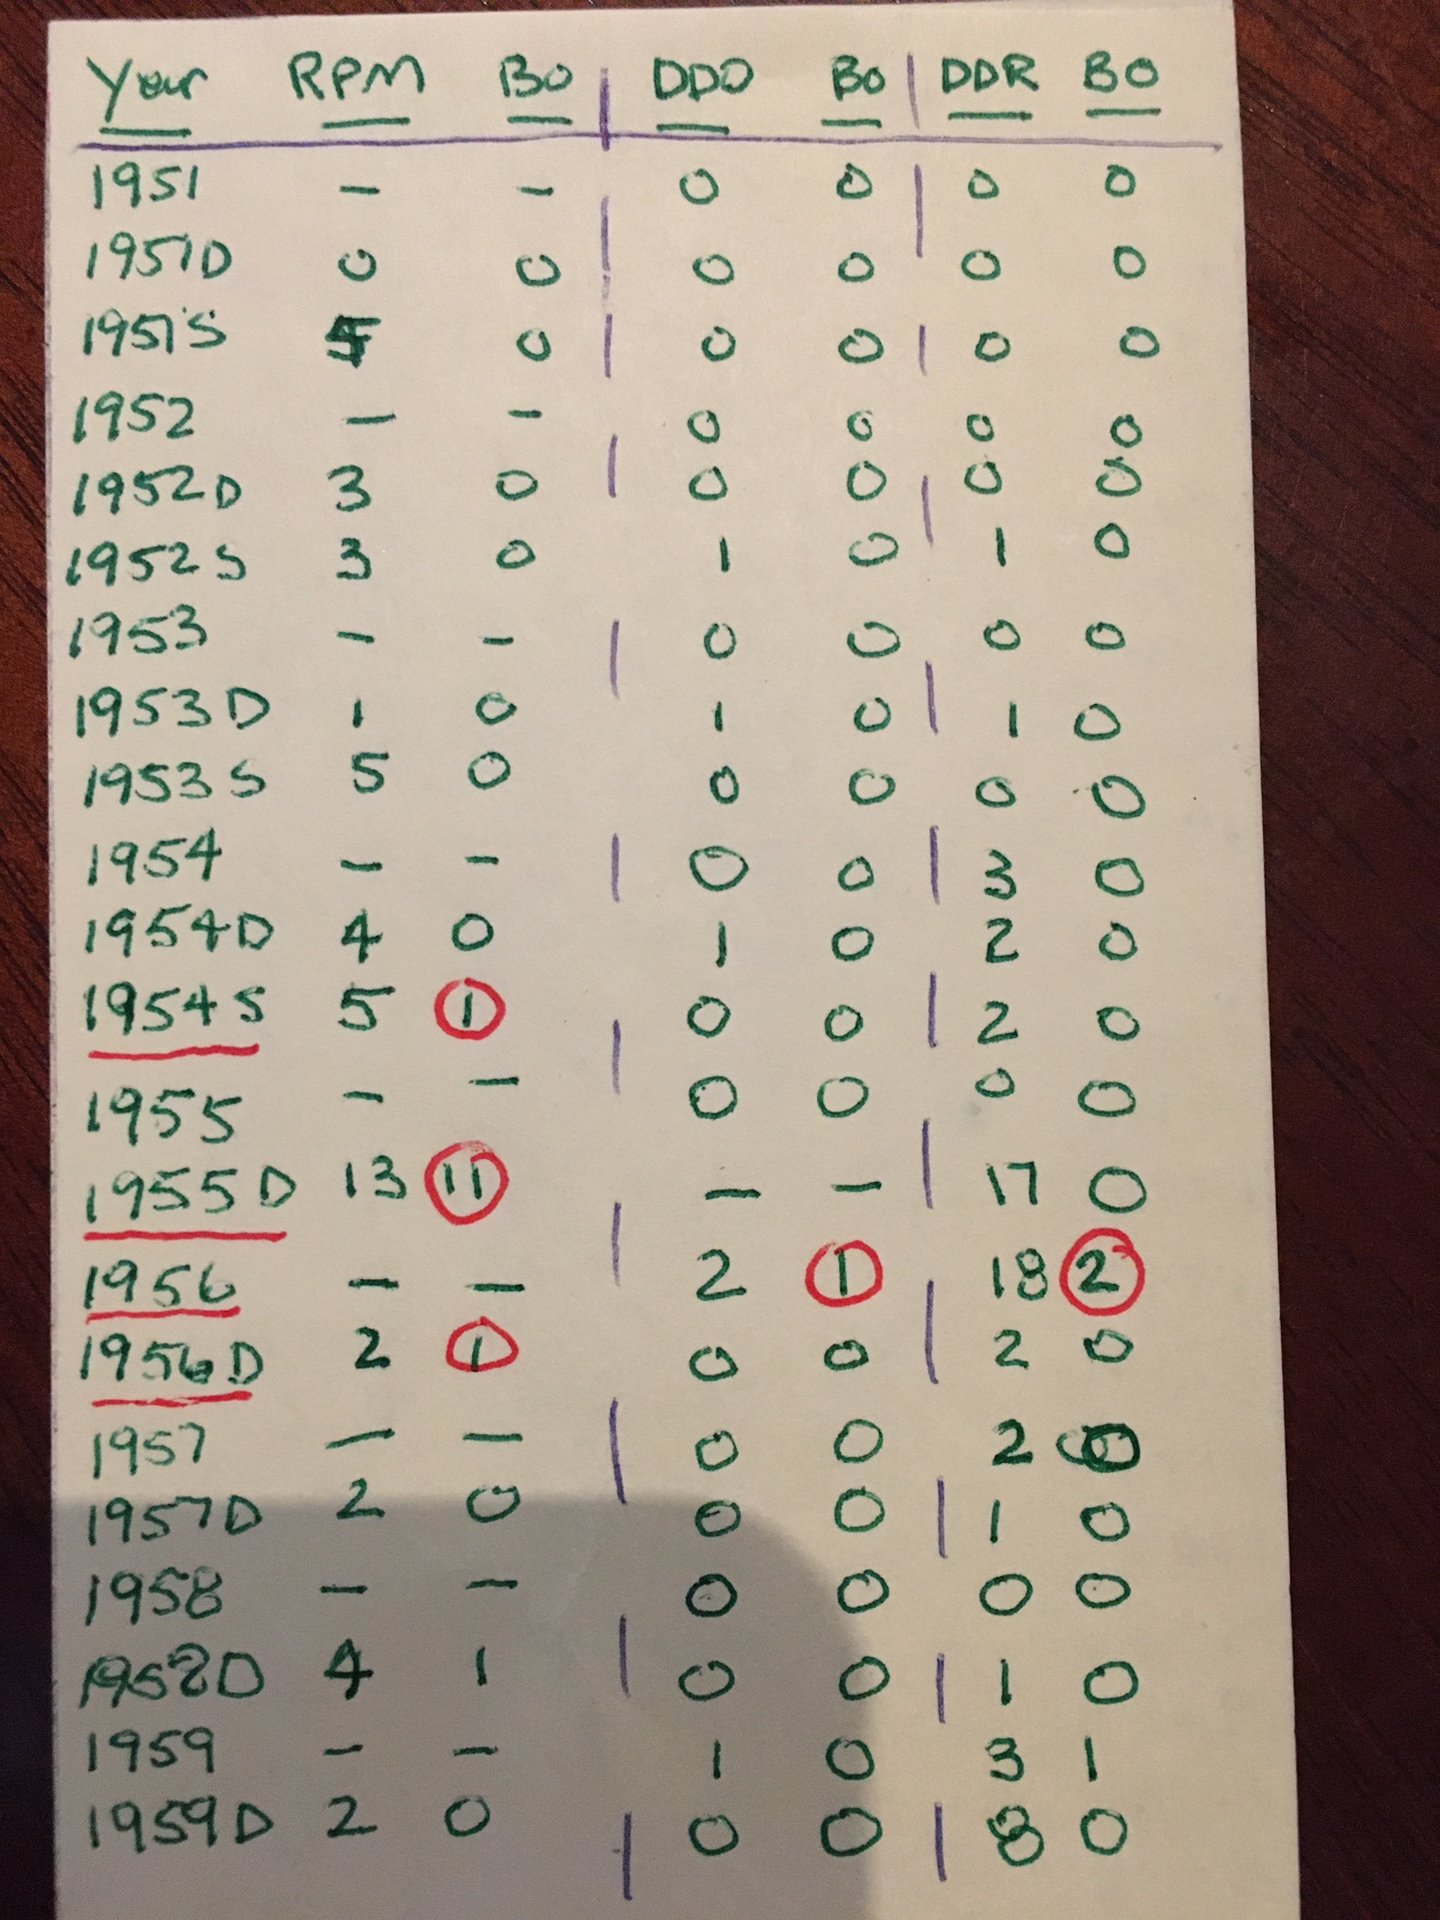 Year RPM BO DDO BO DDR BO
1951 — — 0 0 0 0
1951D 0 0 0 0 0 0
1951S 5 0 0 0 0 0
1952 — — 0 0 0 0
1952D 3 0 0 0 0 0
1952S 3 0 1 0 1 0
1953 — — 0 0 0 0
1953D 1 0 1 0 1 0
1953S 5 0 0 0 0 0
1954 — — 0 0 3 0
1954D 4 0 1 0 2 0
1954S 5 1 0 0 2 0
1955 — — 0 0 0 0
1955D 13 11 — — 17 0
1956 — — 2 1 18 2
1956D 2 1 0 0 2 0
1957 — — 0 0 2 0
1957D 2 0 0 0 1 0
1958 — — 0 0 0 0
1958D 4 1 0 0 1 0
1959 — — 1 0 3 1
1959D 2 0 0 0 8 0